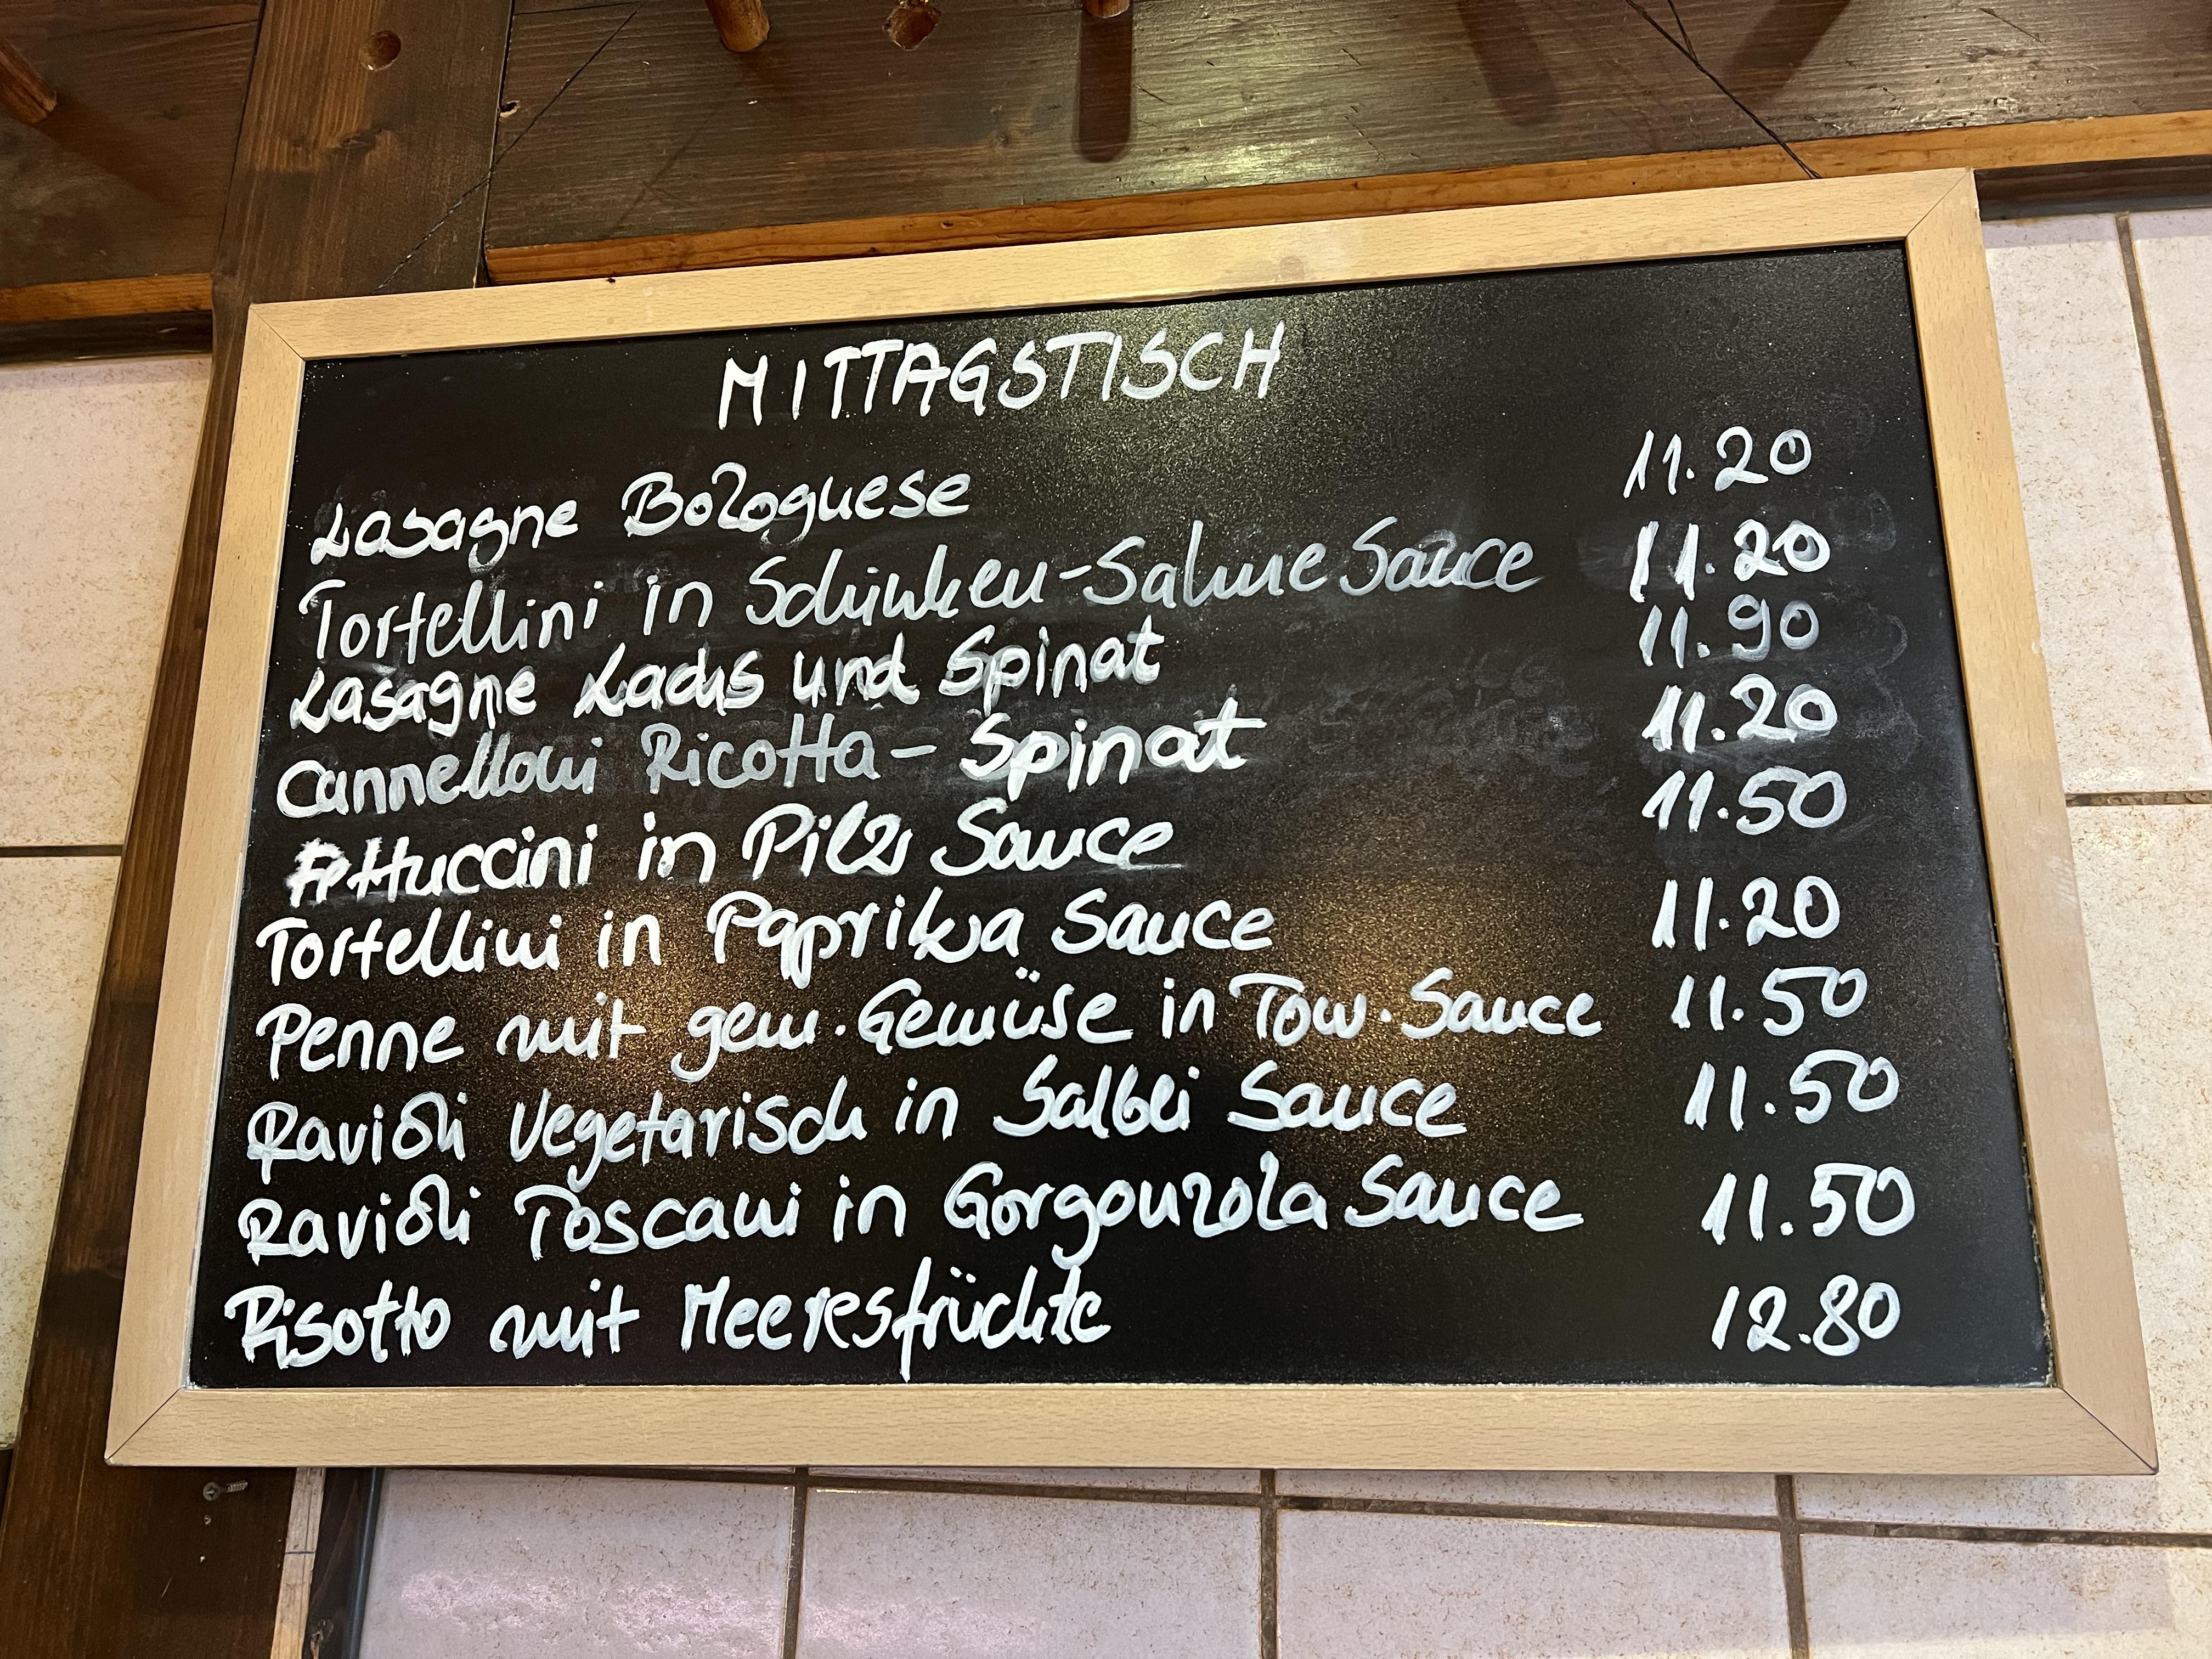 MITTAGSTISCH
Lasagne Bolognese 11.20
Tortellini in Schinken-Sahne Sauce 11.20
Lasagne Lachs und Spinat 11.90
Cannelloni Ricotta - Spinat 11.20
Fettuccini in Pilz Sauce 11.50
Tortellini in Paprika Sauce 11.20
Penne mit gem. Gemüse in Tom. Sauce 11.50
Ravioli Vegetarisch in Salbei Sauce 11.50
Ravioli Toscani in Gorgonzola Sauce 11.50
Risotto mit Meeresfrüchte 12.80